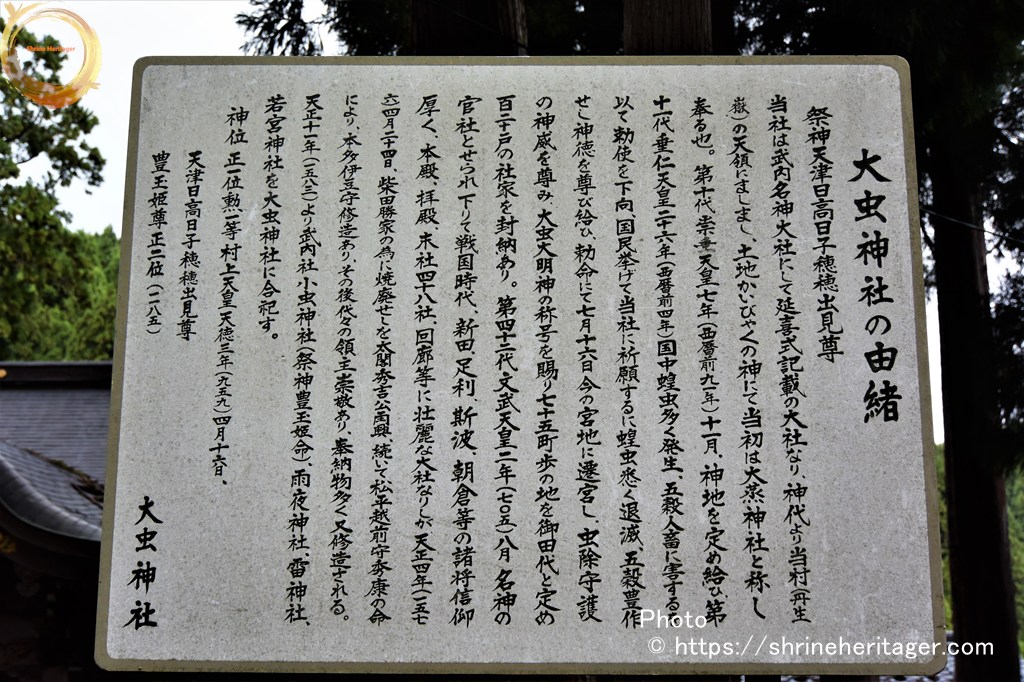 Shrine Heritager
大虫神社の由緒
祭神天津日高日子穂穂出見尊
当社は武内名神大社にて延喜式記載の大社なり、神代より当村(丹生
嶽)の天領にましまし、土地かいびゃくの神にて当初は大蒸神社と称し
奉る也。第十代崇重天皇七年(西暦前九一年)十一月、神地を定め給ひ第
十一代垂仁天皇二十六年(西暦前四年)国中蝗虫多く発生、五穀人畜に害する
以て勅使を下向、国民挙げて当社に祈願するに蝗虫悉く退滅、五穀豊作
せし神徳を尊び給ひ、勅命にて七月十六日今の宮地に遷宮し、虫除守護
の神威を尊み、大虫大明神の称号を賜り七十五町歩の地を御田代と定め
百二十戸の社家を封納あり。第四十二代文武天皇二年(七〇五)八月名神の
官社とせられ下りて戦国時代、新田足利、斯波、朝倉等の諸将信仰
厚く、本殿、拝殿、末社四十八社、回廊等に壮麗な大社なりしが天正四年(一五七
六)四月二十四日、柴田勝家の為に焼廃せしを太閤秀吉公再興、続いて松平越前守秀康の命
により、本多伊豆守修造あり、その後代々の領主崇敬あり、奉納物多く又修造される。
天正十一年(一五八三)より式内社小虫神社(祭神豊玉姫命)、雨夜神社、雷神社、
若宮神社を大虫神社に合祀す。
神位 正一位勲一等 村上天皇天徳三年(九五九)四月十六日、
天津日高日子穂穂出見尊
豊玉姫尊正二位(一二八五)
大虫神社
Photo
© https://shrineheritager.com